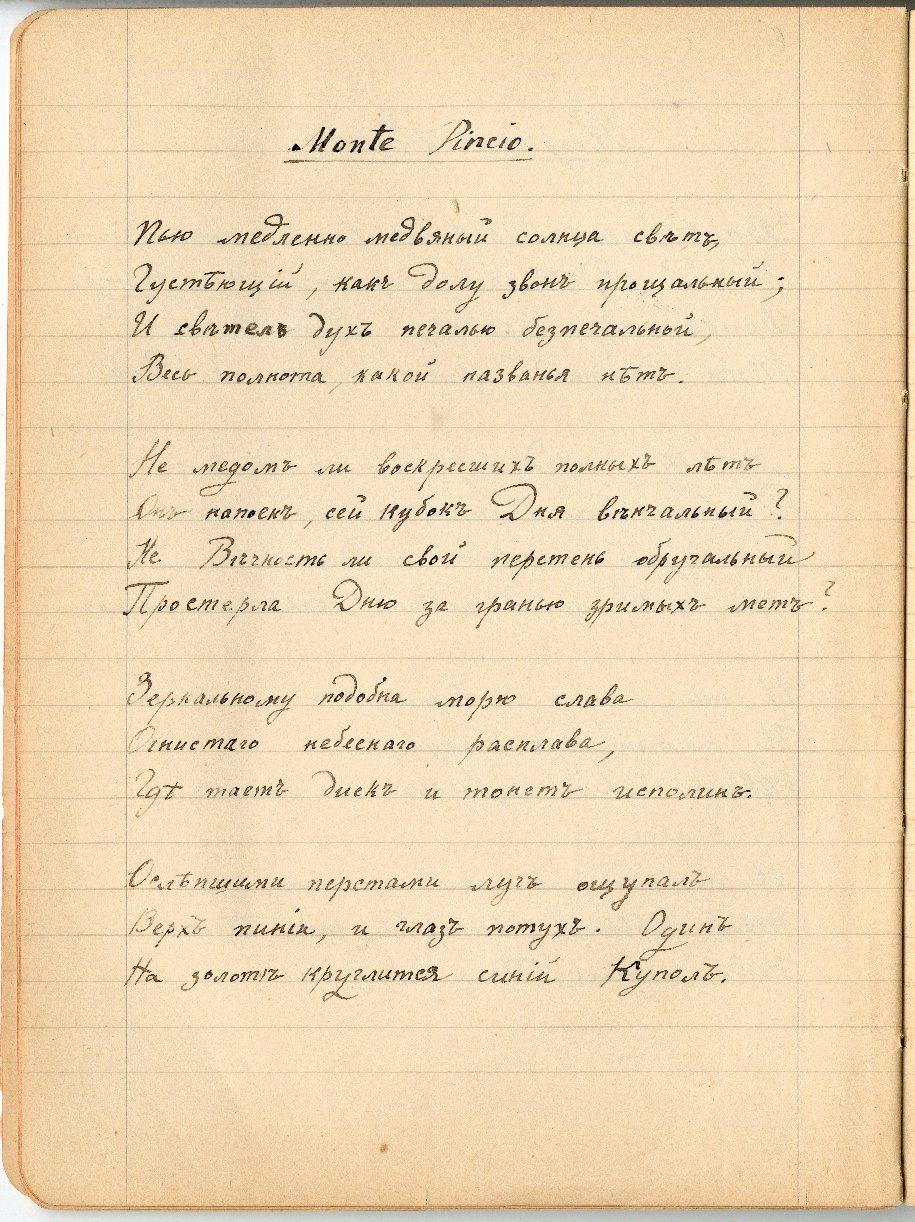 Monte Pincio.
Пью медленно медвяный солнца свѣтъ,
Густѣющій, какъ долу звонъ прощальный;
И свѣтелъ духъ печалью безпечальной,
Весь полнота, какой названья нѣтъ.
Не медомъ ли воскресшихъ полныхъ лѣтъ
Онъ напоенъ, сей кубокъ Дня вѣнчальный?
Не Вѣчность ли свой перстень обручальный
Простерла Дню за гранью зримыхъ метъ?
Зеркальному подобна морю слава
Огнистаго небеснаго расплава,
Гдѣ таетъ дискъ и тонетъ исполинъ.
Ослѣпшими перстами лучъ ощупалъ
Верхъ пиніи, и глазъ потухъ. Одинъ
На золотѣ круглится синій Куполъ.